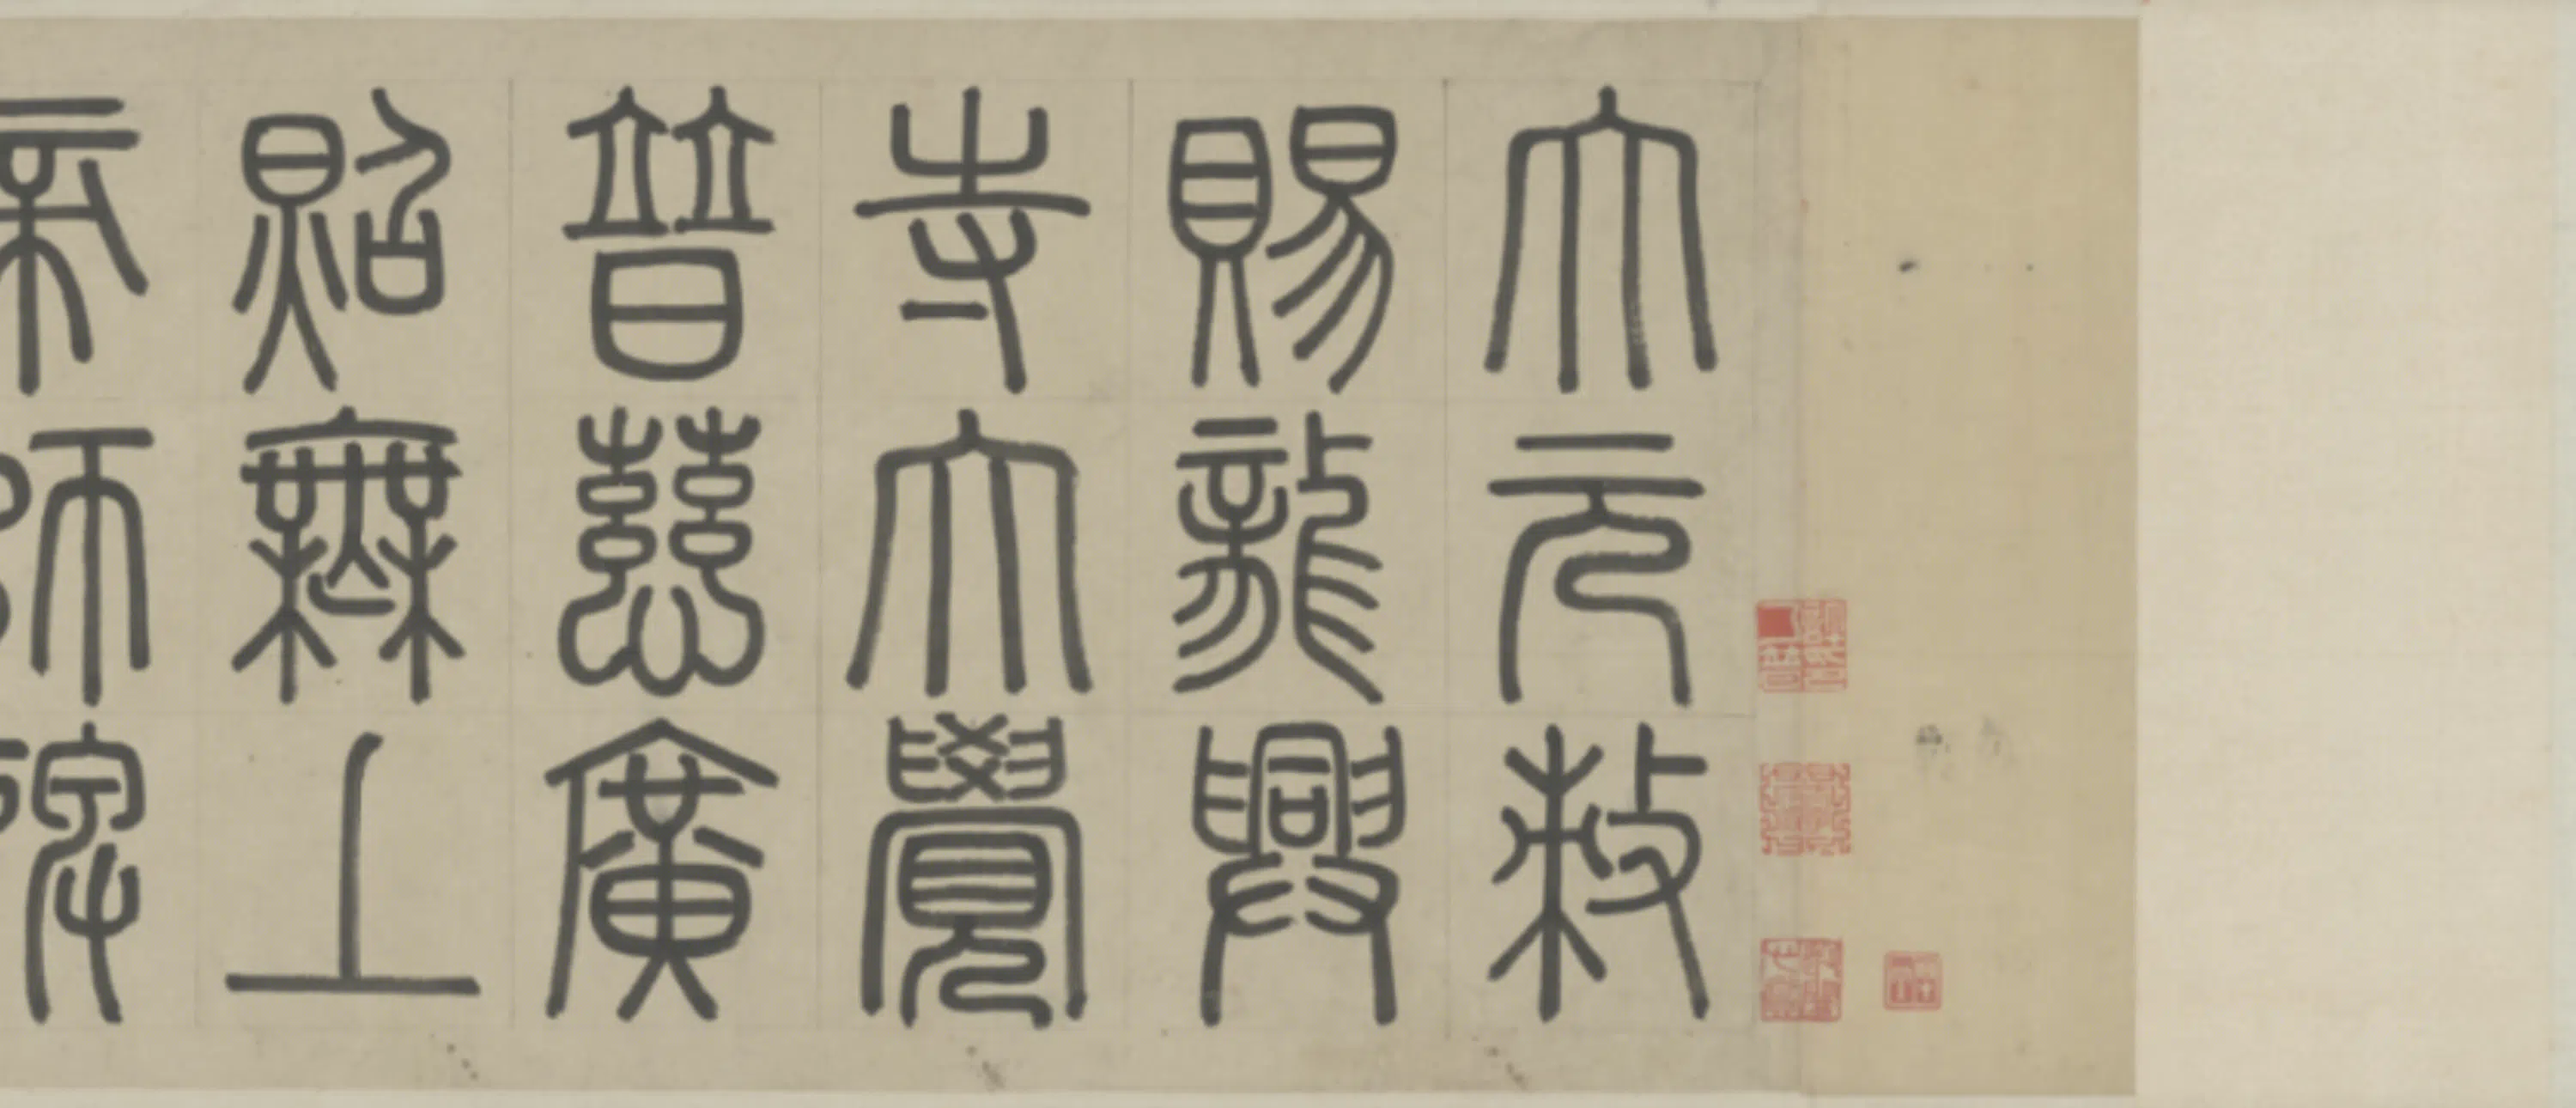 大元敕
賜龍興
寺大覺
普慈廣
照無上
帝師碑